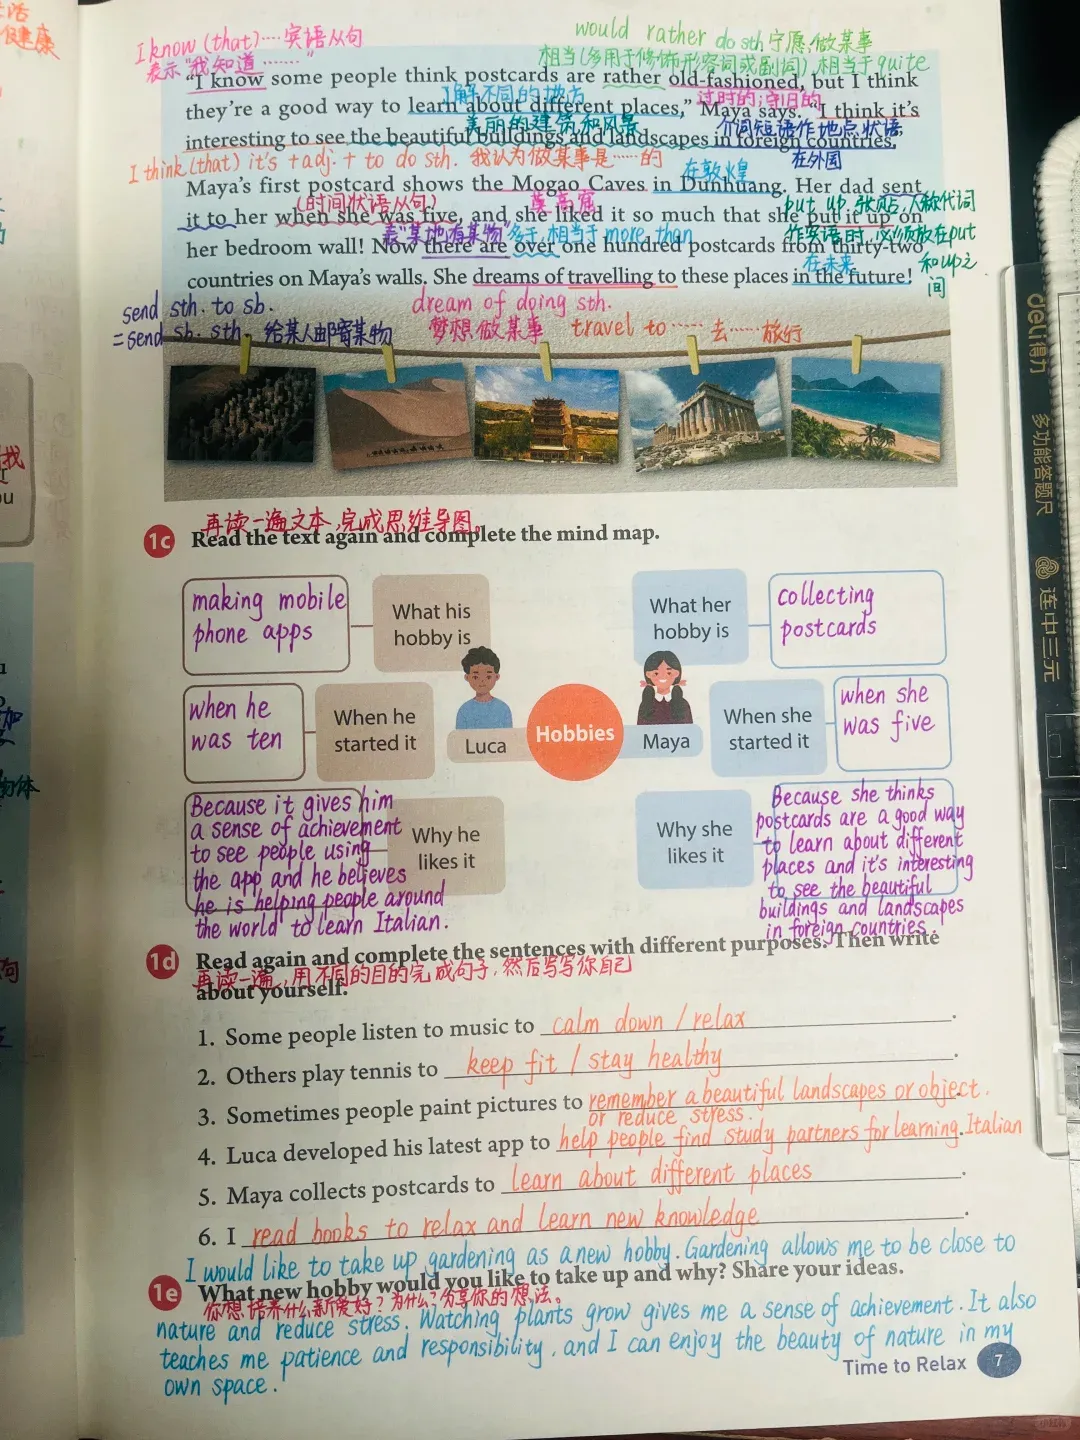 健康
I know (that)…… 宾语从句
would rather do sth 宁愿做某事
表示"我知道……"
相当(多用于修饰形容词或副词), 相当于quite
"I know some people think postcards are rather old-fashioned, but I think
了解不同的地方
过时的;守旧的
they're a good way to learn about different places," Maya says. "I think it's
美丽的建筑和风景
介词短语作地点状语
interesting to see the beautiful buildings and landscapes in foreign countries.
I think (that) it's + adj. + to do sth. 我认为做某事是……的
在敦煌
在外国
Maya's first postcard shows the Mogao Caves in Dunhuang. Her dad sent
(时间状语从句)
莫高窟
put up 张贴,人称代词
it to her when she was five, and she liked it so much that she put it up on
表"某地有某物"
多于,相当于more than
作宾语时,必须放在put
her bedroom wall! Now there are over one hundred postcards from thirty-two
在未来
和up之
countries on Maya's walls. She dreams of travelling to these places in the future!
间
send sth. to sb.
dream of doing sth.
=send sb. sth. 给某人邮寄某物
梦想做某事
travel to …… 去……旅行
deli得力
多功能答题尺
连中三元
找
ou
再读一遍文本,完成思维导图。
1c Read the text again and complete the mind map.
making mobile
phone apps
What his
hobby is
What her
hobby is
collecting
postcards
when he
was ten
When he
started it
Luca
Hobbies
Maya
When she
started it
when she
was five
Because it gives him
a sense of achievement
to see people using
the app and he believes
he is helping people around
the world to learn Italian.
Why he
likes it
Why she
likes it
Because she thinks
postcards are a good way
to learn about different
places and it's interesting
to see the beautiful
buildings and landscapes
in foreign countries.
1d Read again and complete the sentences with different purposes. Then write
再读一遍,用不同的目的完成句子,然后写写你自己
about yourself.
1. Some people listen to music to calm down / relax.
2. Others play tennis to keep fit / stay healthy.
3. Sometimes people paint pictures to remember a beautiful landscapes or object.
or reduce stress.
4. Luca developed his latest app to help people find study partners for learning. Italian
5. Maya collects postcards to learn about different places.
6. I read books to relax and learn new knowledge.
I would like to take up gardening as a new hobby. Gardening allows me to be close to
1e What new hobby would you like to take up and why? Share your ideas.
你想培养什么新爱好?为什么?分享你的想法。
nature and reduce stress. Watching plants grow gives me a sense of achievement. It also
teaches me patience and responsibility, and I can enjoy the beauty of nature in my
own space.
Time to Relax 7